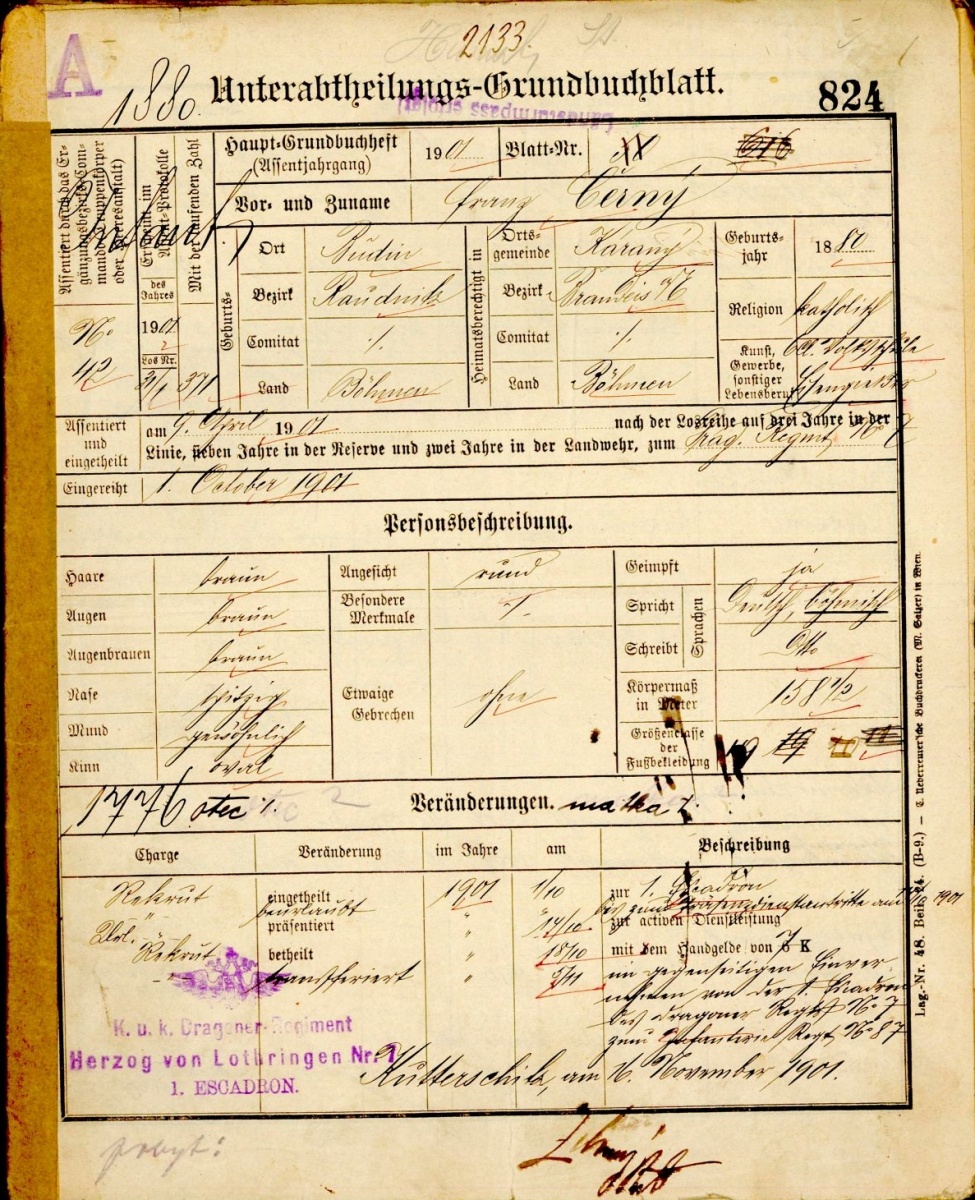 2133.
A
1880.
Unterabtheilungs-Grundbuchblatt.
824
Landsturmpass erfolgt
Assentiert durch das Ergänzungsbezirks-Commando (Truppenkörper oder Heeresanstalt)
No 42
Erscheint im Assent-Protokolle
des Jahres
1901
Los Nr.
Mit der laufenden Zahl
371
Haupt-Grundbuchheft (Assentjahrgang) 1901 Blatt-Nr. 616
Vor- und Zuname Franz Černý
Geburts-
Ort Budin
Bezirk Raudnitz
Comitat ./.
Land Böhmen
Heimatsberechtigt in
Ortsgemeinde Karaný
Bezirk Brandeis a/E
Comitat ./.
Land Böhmen
Geburtsjahr 1880
Religion katholisch
Kunst, Gewerbe, sonstiger Lebensberuf Volksschule
Eisengießer
Assentiert und eingetheilt
am 9. April 1901 nach der Losreihe auf drei Jahre in der
Linie, sieben Jahre in der Reserve und zwei Jahre in der Landwehr, zum Drag. Regmt. No 7
Eingereiht 1. October 1901
Personsbeschreibung.
Haare braun
Augen braun
Augenbrauen braun
Nase spitzig
Mund gewöhnlich
Kinn oval
Angesicht rund
Besondere Merkmale ./.
Etwaige Gebrechen ohne
Geimpft ja
Spricht Sprachen Deutsch, böhmisch
Schreibt Dtto
Körpermaß in Meter 158 1/2
Größenclasse der Fußbekleidung 10 11
1776 otec 1. Veränderungen. matka 2.
Charge Veränderung im Jahre am Beschreibung
Rekrut eingetheilt 1901 1/10 zur 1. Escadron
" beurlaubt " " bis zum Präsenzdienstantritte am 1901
präsentiert " 14/10 zur activen Dienstleistung
Rekrut betheilt " 18/10 mit dem Handgelde von 7 K
" transferiert " im gegenseitigen Einver-
nehmen von der 1. Escadron
des Dragoner Regts No 7
zum Infanterie Regt No 87
K. u. k. Dragoner-Regiment
Herzog von Lothringen Nr. 7
1. ESCADRON.
Kutterschitz, am 16. November 1901.
pobyt:
Lag.-Nr. 48. Beil. 24. (B-9.) — C. Ueberreuter'sche Buchdruckerei (M. Salzer) in Wien.